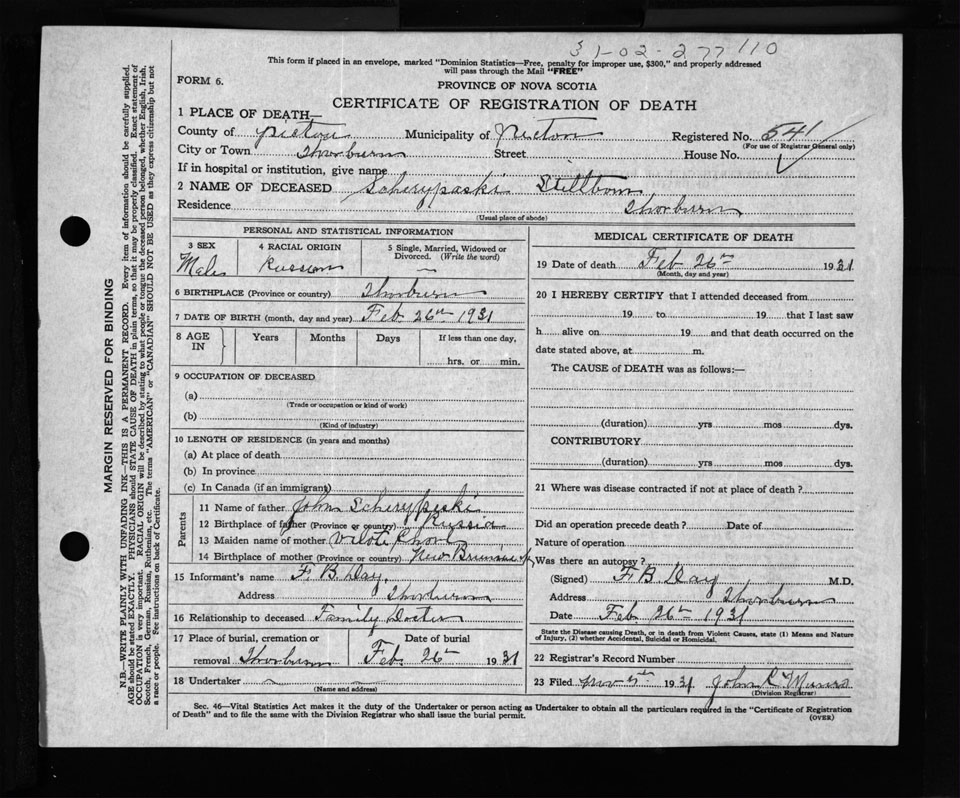 31-02-277110
This form if placed in an envelope, marked "Dominion Statistics—Free, penalty for improper use, $300," and properly addressed
will pass through the Mail "FREE"
FORM 6.
PROVINCE OF NOVA SCOTIA
CERTIFICATE OF REGISTRATION OF DEATH
1 PLACE OF DEATH—
County of Pictou Municipality of Pictou Registered No. 541
(For use of Registrar General only)
City or Town Thorburn Street House No.
If in hospital or institution, give name
2 NAME OF DECEASED Scherypaski Stillborn
Residence Thorburn
(Usual place of abode)
PERSONAL AND STATISTICAL INFORMATION
3 SEX 4 RACIAL ORIGIN 5 Single, Married, Widowed or
Divorced. (Write the word)
Male Russian —
6 BIRTHPLACE (Province or country) Thorburn
7 DATE OF BIRTH (month, day and year) Feb 26th 1931
8 AGE IN Years Months Days If less than one day,
hrs. or min.
9 OCCUPATION OF DECEASED
(a)
(Trade or occupation or kind of work)
(b)
(Kind of industry)
10 LENGTH OF RESIDENCE (in years and months)
(a) At place of death
(b) In province
(c) In Canada (if an immigrant)
Parents
11 Name of father John Scherypeski
12 Birthplace of father (Province or country) Russia
13 Maiden name of mother
14 Birthplace of mother (Province or country) New Brunswick
15 Informant's name F B Day
Address Thorburn
16 Relationship to deceased Family Doctor
17 Place of burial, cremation or Date of burial
removal Thorburn Feb 26th 1931
18 Undertaker
(Name and address)
MEDICAL CERTIFICATE OF DEATH
19 Date of death Feb 26th 1931
(Month, day and year)
20 I HEREBY CERTIFY that I attended deceased from
19 to 19 that I last saw
h alive on 19 and that death occurred on the
date stated above, at m.
The CAUSE of DEATH was as follows:—
(duration) yrs mos dys.
CONTRIBUTORY
(duration) yrs. mos. dys.
21 Where was disease contracted if not at place of death?
Did an operation precede death? Date of
Nature of operation
Was there an autopsy?
(Signed) F B Day M.D.
Address Thorburn
Date Feb 26th 1931
State the Disease causing Death, or in death from Violent Causes, state (1) Means and Nature
of Injury, (2) whether Accidental, Suicidal or Homicidal.
22 Registrar's Record Number
23 Filed Nov 5th 1931 John R Munro
(Division Registrar)
Sec. 46—Vital Statistics Act makes it the duty of the Undertaker or person acting as Undertaker to obtain all the particulars required in the "Certificate of Registration
of Death" and to file the same with the Division Registrar who shall issue the burial permit.
(OVER)
MARGIN RESERVED FOR BINDING
N.B.—WRITE PLAINLY WITH UNFADING INK—THIS IS A PERMANENT RECORD. Every item of information should be carefully supplied.
AGE should be stated EXACTLY. PHYSICIANS should STATE CAUSE OF DEATH in plain terms, so that it may be properly classified. Exact statement of
OCCUPATION is very important. RACIAL ORIGIN will be described by stating to what people or tongue the deceased person belonged, whether English, Irish,
Scotch, French, German, Russian, Ruthenian, etc. The terms "AMERICAN" or "CANADIAN" SHOULD NOT BE USED as they express citizenship but not
a race or people. See instructions on back of Certificate.